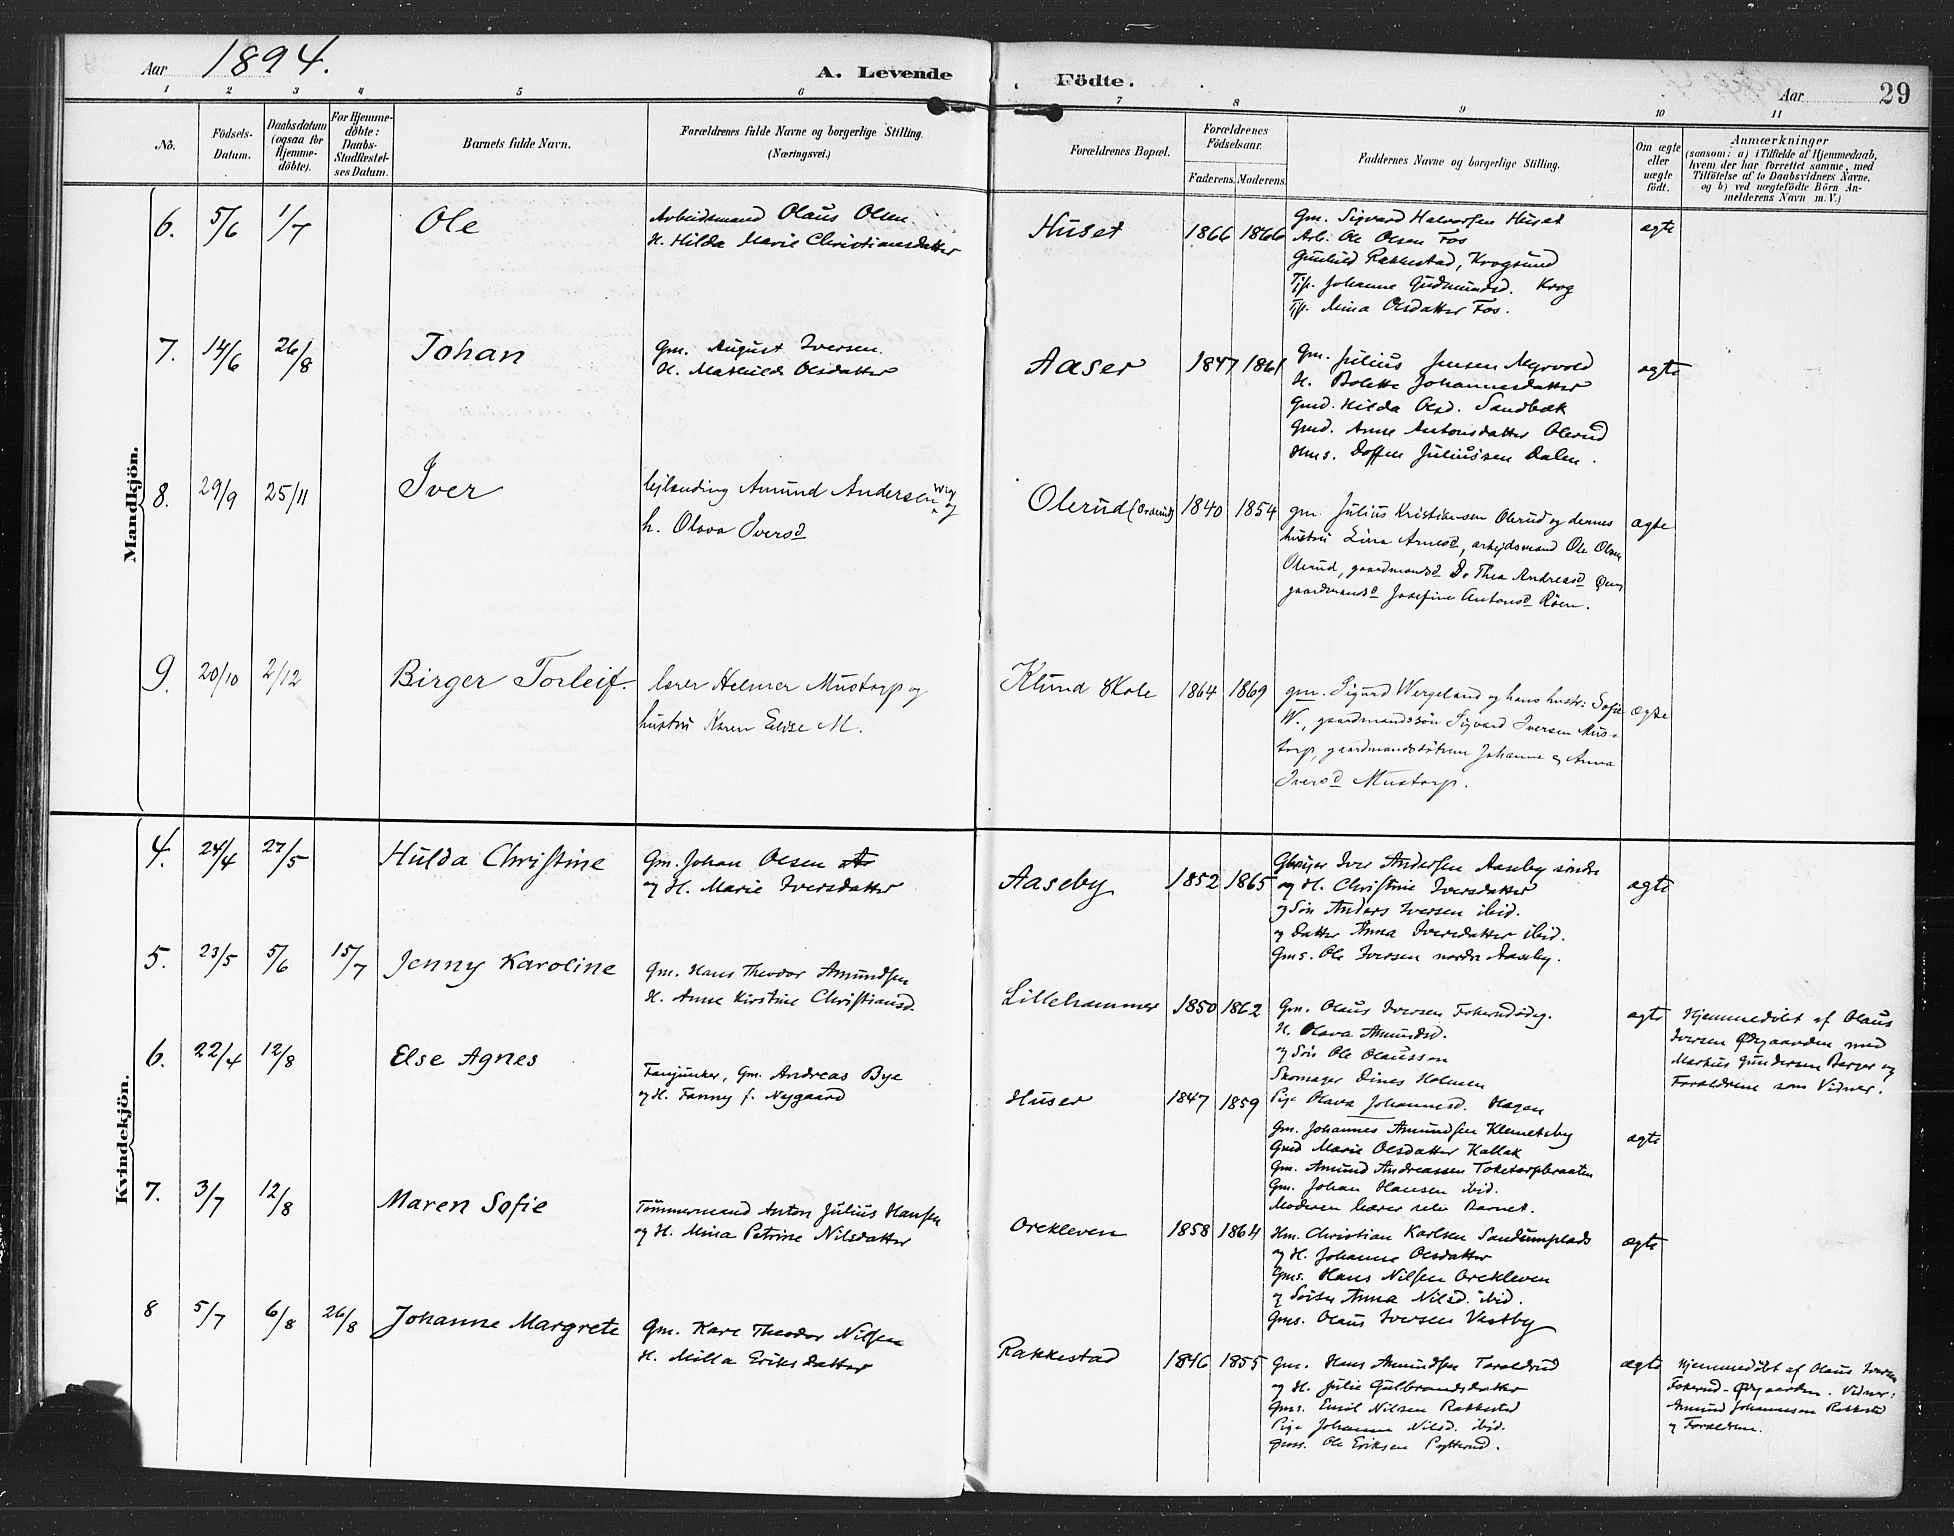 Aar 1894.
A. Levende Födte.
Aar 29
1 2 3 4 5 6 7 8 9 10 11
No.
Födsels-Datum.
Daabsdatum (ogsaa for Hjemme-döbte).
For Hjemme-döbte: Daabs-Stadfæstel-ses Datum.
Barnets fulde Navn.
Forældrenes fulde Navne og borgerlige Stilling.
(Næringsvei.)
Forældrenes Bopæl.
Forældrenes Födselsaar.
Faderens. Moderens.
Faddernes Navne og borgerlige Stilling.
Om ægte eller uægte födt.
Anmærkninger
(saasom: a) i Tilfælde af Hjemmedaab,
hvem der har forrettet samme, med
Tilföielse af to Daabsvidners Navne,
og b) ved uegtefödte Börn An-
melderens Navn m. V.)
Mandkjön.
6. 5/6 1/7 Ole
Arbeidsmand Olaus Olsen
H. Hilda Marie Christiansdatter
Huset 1866 1866
Gm. Sigvard Halvorsen Huset
Arb. Ole Olsen Fos
Gunhild Rakkestad, Krogsund
Tjp. Johanne Gudmundsd. Krog
Tjp. Mina Olsdatter Fos.
ægte
7. 14/6 26/8 Johan
Gm. August Iversen
H. Mathilde Olsdatter
Aaser 1847 1861
Gm. Julius Jensen Myrvold
H. Bolette Johannesdatter
Gmd. Hilda Olsd. Sandbæk
Gmd. Anne Antonsdatter Olerud
Hms. Doffen Juliussen Dalen.
ægte
8. 29/9 25/11 Iver
lejlending Amund Andersen Wig og
h. Olava Iversd
Olerud 1840 1854
gm. Julius Kristiansen Olerud og dennes
hustru Lina Arnesd, arbejdsmand Ole Olsen
Olerud, gaardmandsd Do Thea Andreasd
gaardmandsd Josefine Antonsd Røen.
ægte
9. 20/10 2/12 Birger Torleif.
lærer Helmer Mustorp og
hustru Karen Elise M.
Klund Skole 1864 1869
gm. Sigurd Wergeland og hans hustr: Sofie
W., gaardmandssön Sigvard Iversen Mus-
torp, gaardmandsdötrene Johanne og Anna
Iversd Mustorp.
ægte
Kvindekjön.
4. 24/4 27/5 Hulda Christine
Gm. Johan Olsen
og H. Marie Iversdatter
Aaseby 1852 1865
Gbruger Iver Andersen Aaseby söndre
og H. Christine Iversdatter
og Sön Anders Iversen ibid.
og Datter Anna Iversdatter ibid.
Gms. Ole Iversen nordre Aaseby.
ægte
5. 23/5 5/6 15/7 Jenny Karoline
Gm. Hans Theodor Amundsen
H. Anne Kirstine Christiansd.
Lillehammer 1850 1862
Gm. Olaus Iversen Fokerudödeg.
H. Olava Amundsd.
og Sön Ole Olaussen
Skomager Dines Holmsen
Pige Olava Johannesd. Hagen
ægte
Hjemmedøbt af Olaus
Iversen Ødegaarden med
Markus Gundersen Berger og
Forældrene som Vidner.
6. 22/4 12/8 Else Agnes
Fanejunker, Gm. Andreas Bye
og H. Fanny f. Nygaard
Huser 1847 1859
Gm. Johannes Amundsen Klemetsby
Gmd Marie Olsdatter Kallak
Gm. Amund Andreassen Toketorpbraaten
Gm. Johan Hansen ibid.
Moderen bærer selv Barnet.
ægte
7. 3/7 12/8 Maren Sofie
Tømmermand Anton Julius Hansen
og H. Mina Petrine Nilsdatter
Orekleven 1858 1864
Hm. Christian Karlsen Sandumplads
og H. Johanne Olsdatter
Gms. Hans Nilsen Orekleven
og Søster Anna Nilsd. ibid.
Gms. Olaus Iversen Vestby
ægte
8 5/7 6/8 26/8 Johanne Margrete
Gm. Karl Theodor Nilsen
H. Milla Eriksdatter
Rakkestad 1846 1855
Gm. Hans Amundsen Taraldrud
og H. Julie Gulbrandsdatter
Gms. Emil Nilsen Rakkestad
Pige Johanne Nilsd. ibid.
Gms. Ole Eriksen
ægte
Hjemmedøbt af Olaus Iversen
Fokerud-Ødegaarden. Vidner:
Amund Johannessen Rakkestad
og Forældrene.